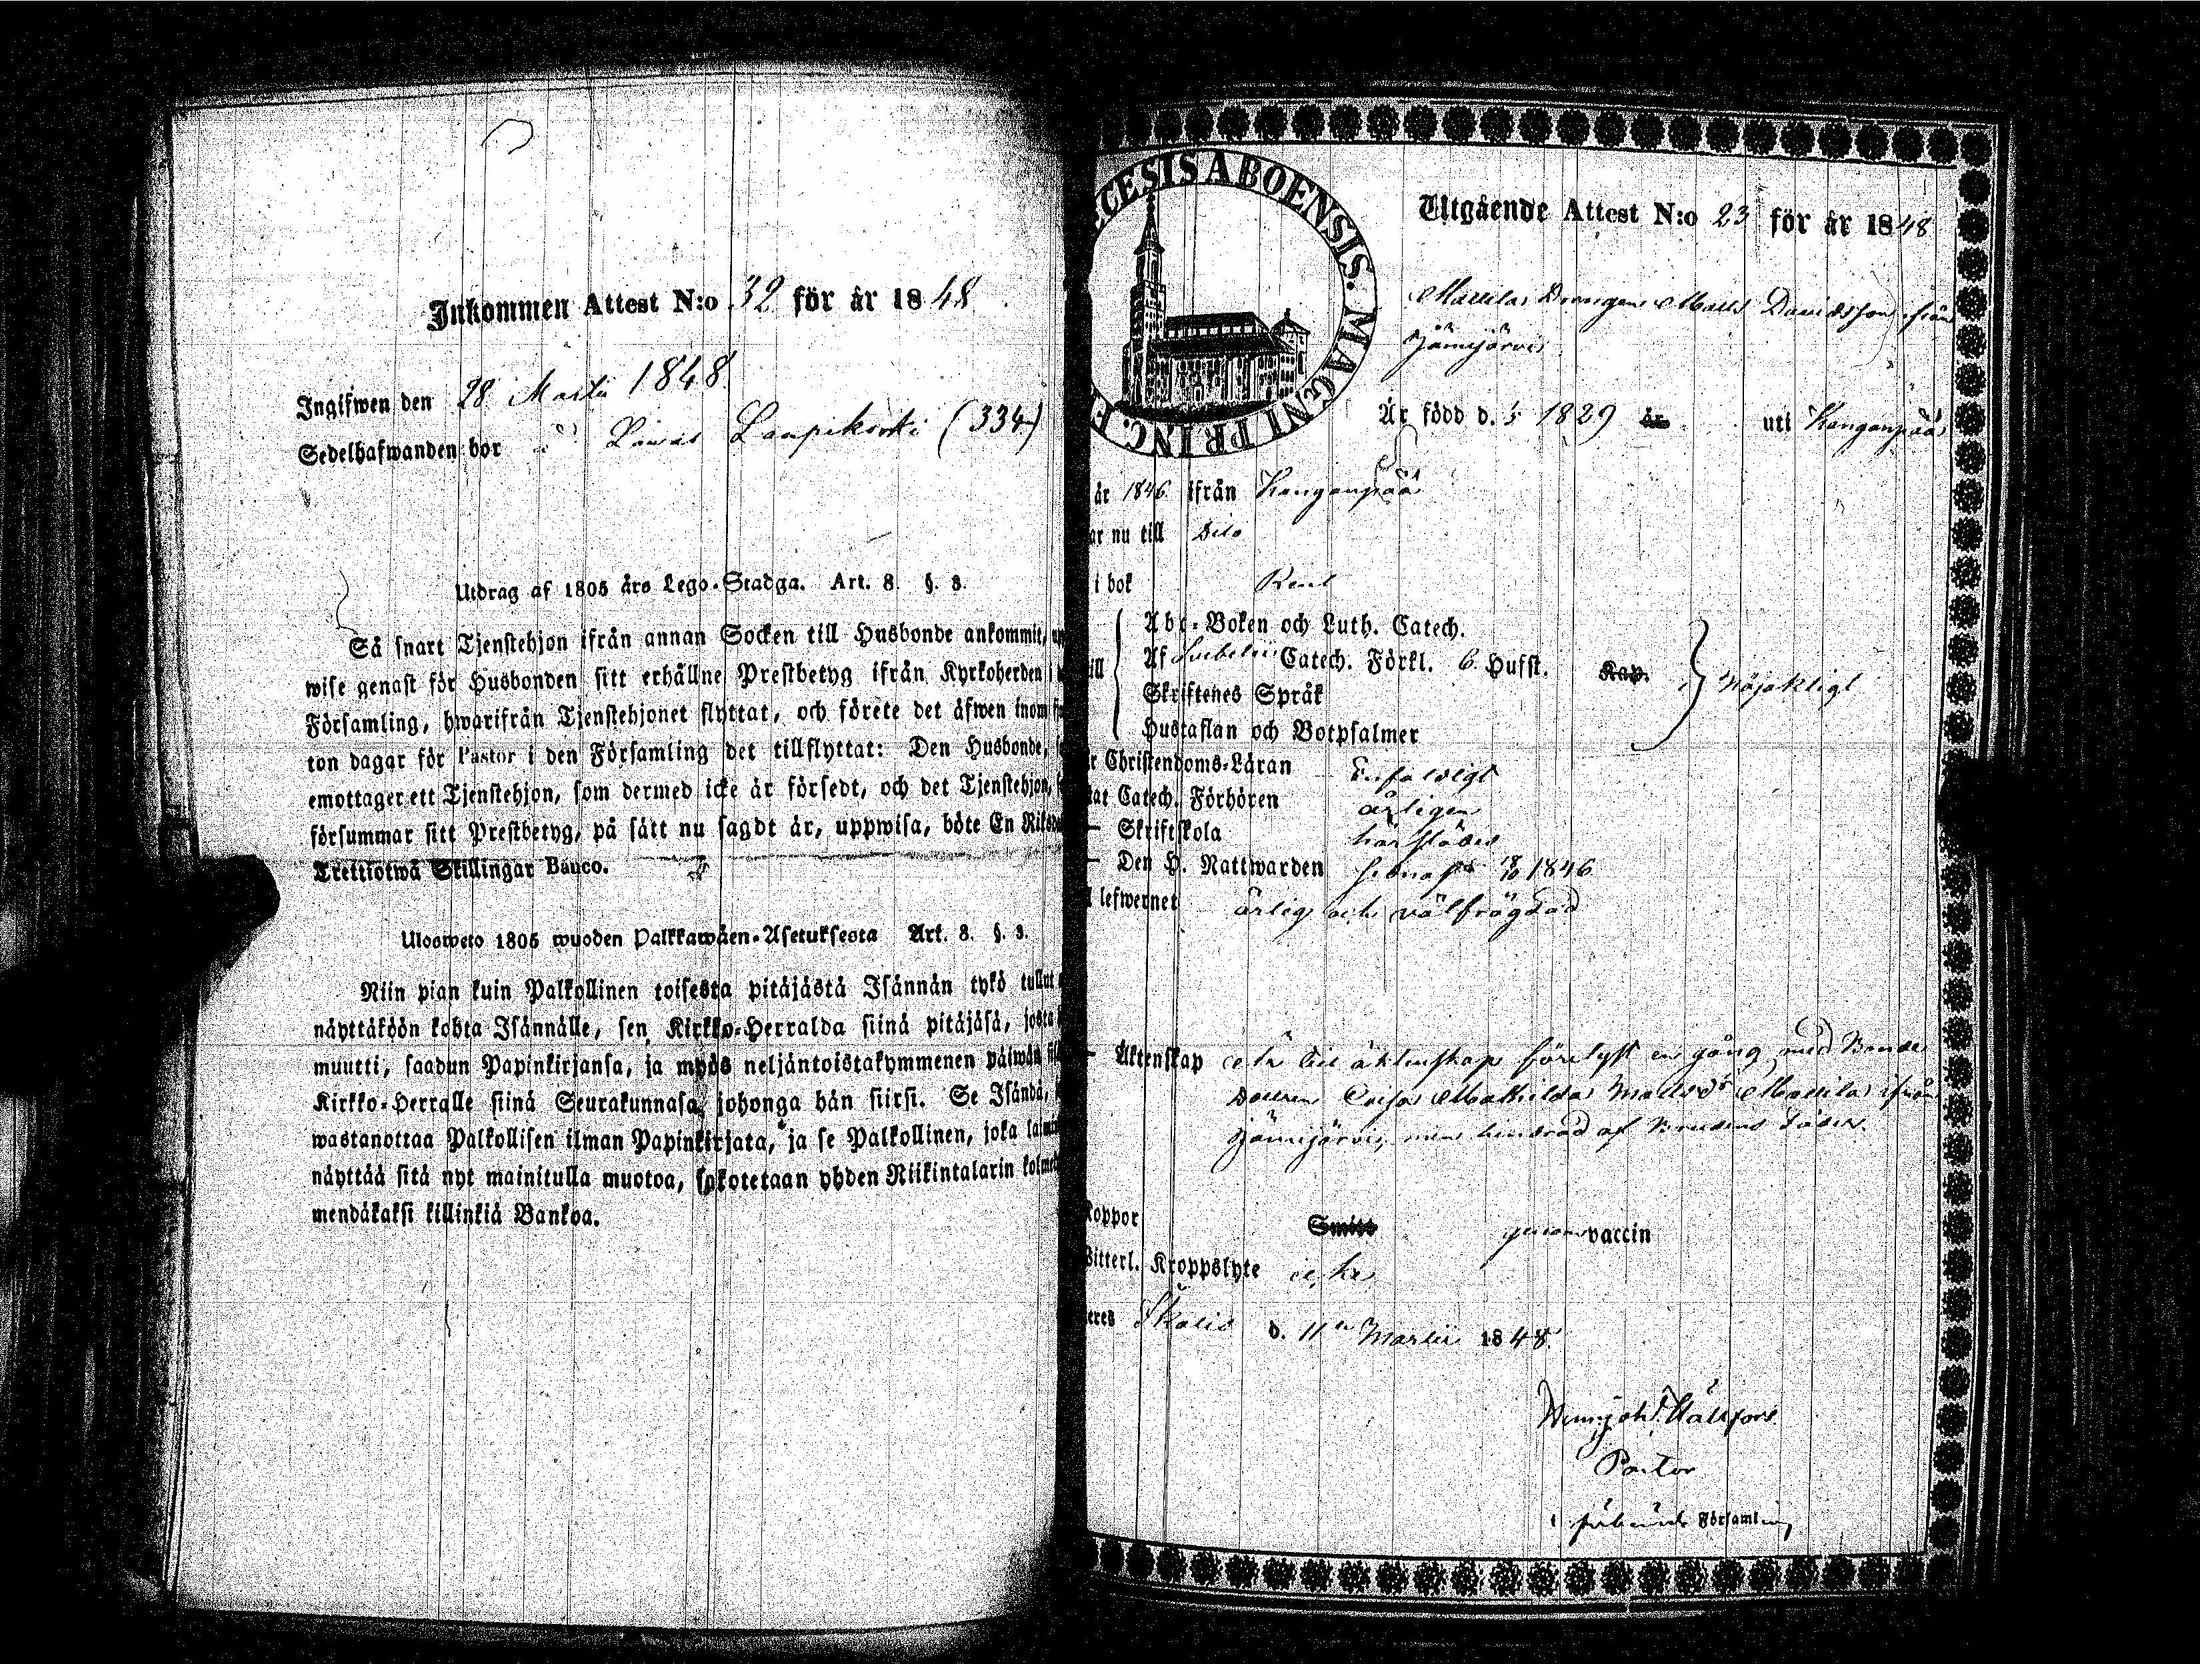 Inkommen Attest N:o 32 för år 1848
Ingifwen den 28 Martii 1848
Sedelhafwanden bor (334)
Utdrag af 1805 års Lego-Stadga. Art. 8. §. 3.
Så snart Tjenstehjon ifrån annan Socken till Husbonde ankommit,
wise genast för Husbonden sitt erhållne Prestbetyg ifrån Kyrkoherden i
Församling, hwarifrån Tjenstehjonet flyttat, och förete det äfwen inom
ton dagar för Pastor i den Församling det tillflyttat: Den Husbonde,
emottager ett Tjenstehjon, som dermed icke är försedt, och det Tjenstehjon,
försummar sitt Prestbetyg, på sätt nu sagdt är, uppwisa, böte En
Trettiotwå Skillingar Banco.
Ulosweto 1805 wuoden Palkkawäen-Asetuksesta Art. 8. §. 3.
Niin pian kuin Palkollinen toisesta pitäjästä Isännän tykö tullut
näyttäköön kohta Isännälle, sen Kirkko-Herralda siinä pitäjäsä, josta
muutti, saadun Papinkirjansa, ja myös neljäntoistakymmenen päiwän
Kirkko-Herralle siinä Seurakunnasa, johonga hän siirsi. Se Isändä,
wastanottaa Palkollisen ilman Papinkirjata, ja se Palkollinen, joka
näyttää sitä nyt mainitulla muotoa, sakotetaan yhden Riikintalarin
mendäkaksi killinkiä Bankoa.
CESIS ABOENSIS. MAGNI PRINC. F
Utgående Attest N:o 23 för år 1848
Drengen Matts Davidsson från
Jämijärvi
Är född d. 1829 år uti Kanganpää
år 1846 ifrån Kanganpää
ar nu till Dito
i bok Rent
Abc-Boken och Luth. Catech.
Af Svebelii Catech. Förkl. 6 Hufst. Kap.
Skriftenes Språk
Nöjaktligt
Hustaflan och Botpsalmer
r Christendoms-Läran Enfaldigt
at Catech. Förhören årligen
Skriftskola härstädes
Den H. Nattwarden 1846
lefwernet ärlig och välfrägdad
Äktenskap till äktenskap förelyst en gång med Bonde
Dottren Caisa Mathilda Mattsdr ifrån
Jämijärvi, men hindrad af Brudens fader.
Koppor Smitt genom vaccin
Witterl. Kroppslyte
eres Ikalis d. 11 Martii 1848.
Pastor
i Församling